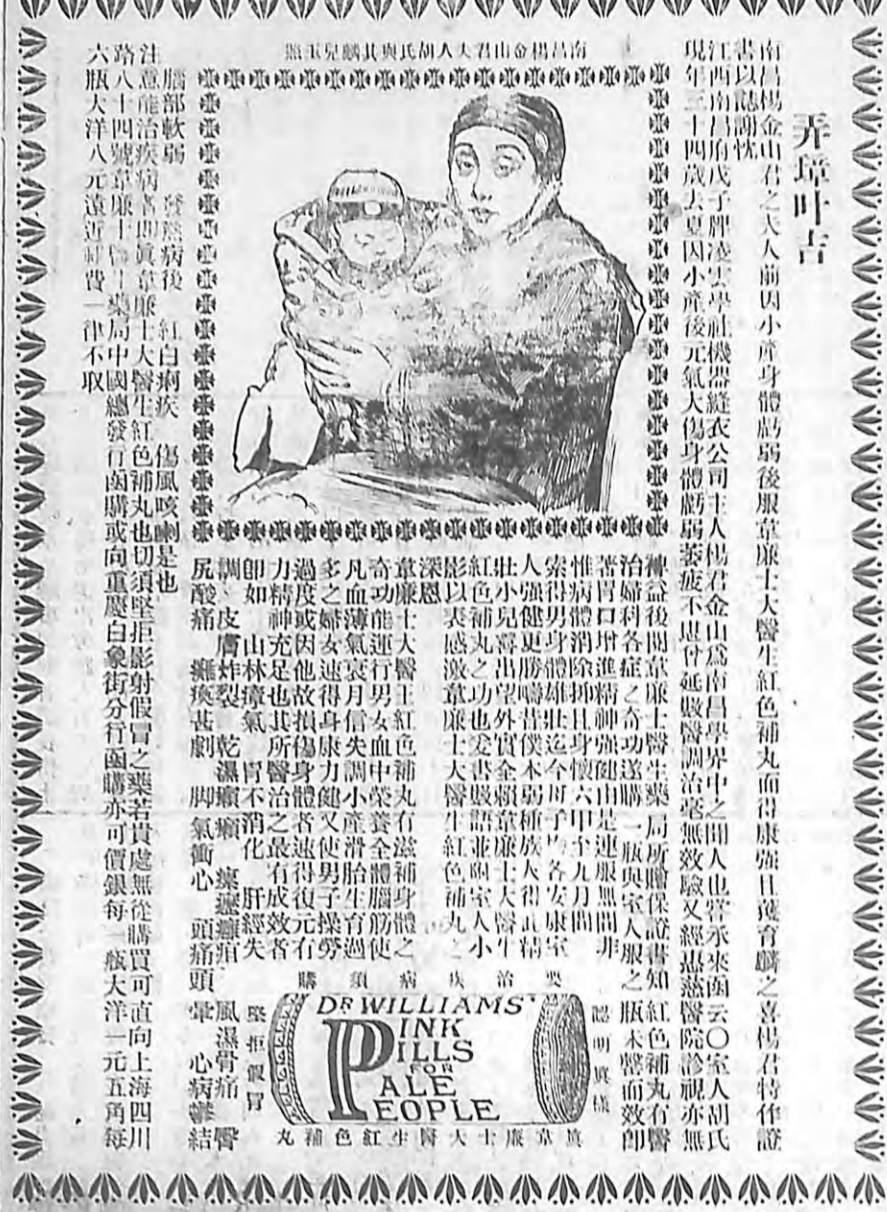 弄璋叶吉
南昌楊金山君之夫人前因小產身體虧弱後服韋廉士大醫生紅色補丸而得康強且獲育麟之喜楊君特作證
書以誌謝忱
江西南昌府戊子牌凌雲學社機器縫衣公司主人楊君金山為南昌學界中之聞人也嘗承來函云〇室人胡氏
現年三十四歲去夏因小產後元氣大傷身體虧弱萎疲不堪曾延數醫調治毫無效驗又經惠慈醫院診視亦無
南昌楊金山君夫人胡氏與其麟兒玉照
神益後閱韋廉士醫生藥局所贈保證書知紅色補丸有醫
治婦科各症之奇功遂購一瓶與室人服之瓶未罄而效卽
著胃口增進精神强健由是連服無間非
惟病體消除抑且身懷六甲至九月間
索得男身體雄壯迄今母子均各安康室
人強健更勝疇昔僕本弱種族人得此精
壯小兒喜出望外實全賴韋廉士大醫生
紅色補丸之功也爰書數語並附室人小
影以表感激韋廉士大醫生紅色補丸之
深恩
韋廉士大醫生紅色補丸有滋補身體之
奇功能運行男女血中榮養全體腦筋使
凡血薄氣衰月信失調小產滑胎生育過
多之婦女速得身康力健又使男子操勞
過度或因他故損傷身體者速得復元有
力精神充足也其所醫治之最有成效者
卽如 山林瘴氣 胃不消化 肝經失
調 皮膚炸裂 乾濕癩癬 瘰癧 風濕骨痛 臀
尻酸痛 癱瘓甚劇 脚氣衝心 頭痛頭暈 心病鬱結
腦部軟弱 發熱病後 紅白痢疾 傷風咳嗽是也
注意能治疾病者卽眞韋廉士大醫生紅色補丸也切須堅拒影射假冒之藥若貴處無從購買可直向上海四川
路八十四號韋廉士醫生藥局中國總發行函購或向重慶白象街分行函購亦可價銀每一瓶大洋一元五角每
六瓶大洋八元遠近郵費一律不取
要治疾病須購
認明眞樣
DR WILLIAMS'
PINK
PILLS
FOR
PALE
PEOPLE
堅拒假冒
眞韋廉士大醫生紅色補丸